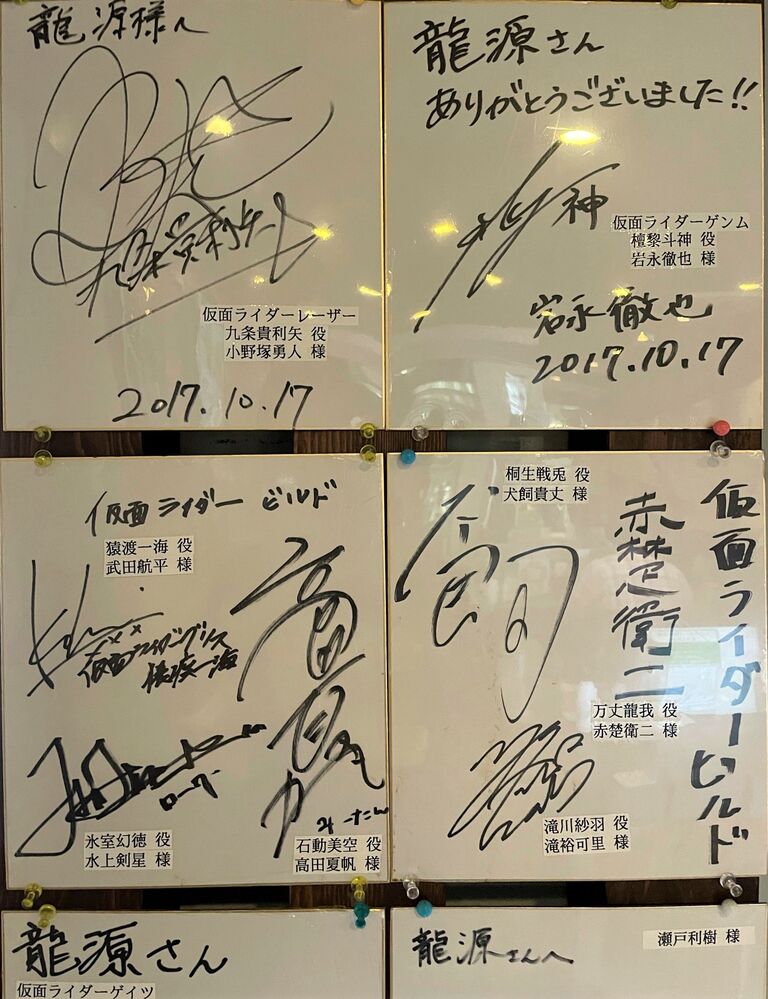 龍源様へ
九条貴利矢
仮面ライダーレーザー
九条貴利矢 役
小野塚勇人 様
2017.10.17
龍源さん
ありがとうございました!!
神
仮面ライダーゲンム
檀黎斗神 役
岩永徹也 様
岩永徹也
2017.10.17
仮面ライダー ビルド
猿渡一海 役
武田航平 様
仮面ライダーグリス
猿渡一海
ローグ
氷室幻徳 役
水上剣星 様
みーたん
石動美空 役
高田夏帆 様
桐生戦兎 役
犬飼貴丈 様
仮面ライダービルド
赤楚衛二
万丈龍我 役
赤楚衛二 様
滝川紗羽 役
滝裕可里 様
龍源さん
仮面ライダーゲイツ
龍源さんへ
瀬戸利樹 様